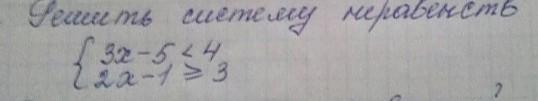 Решить систему неравенств
{ 3x - 5 < 4
{ 2x - 1 ≥ 3
?